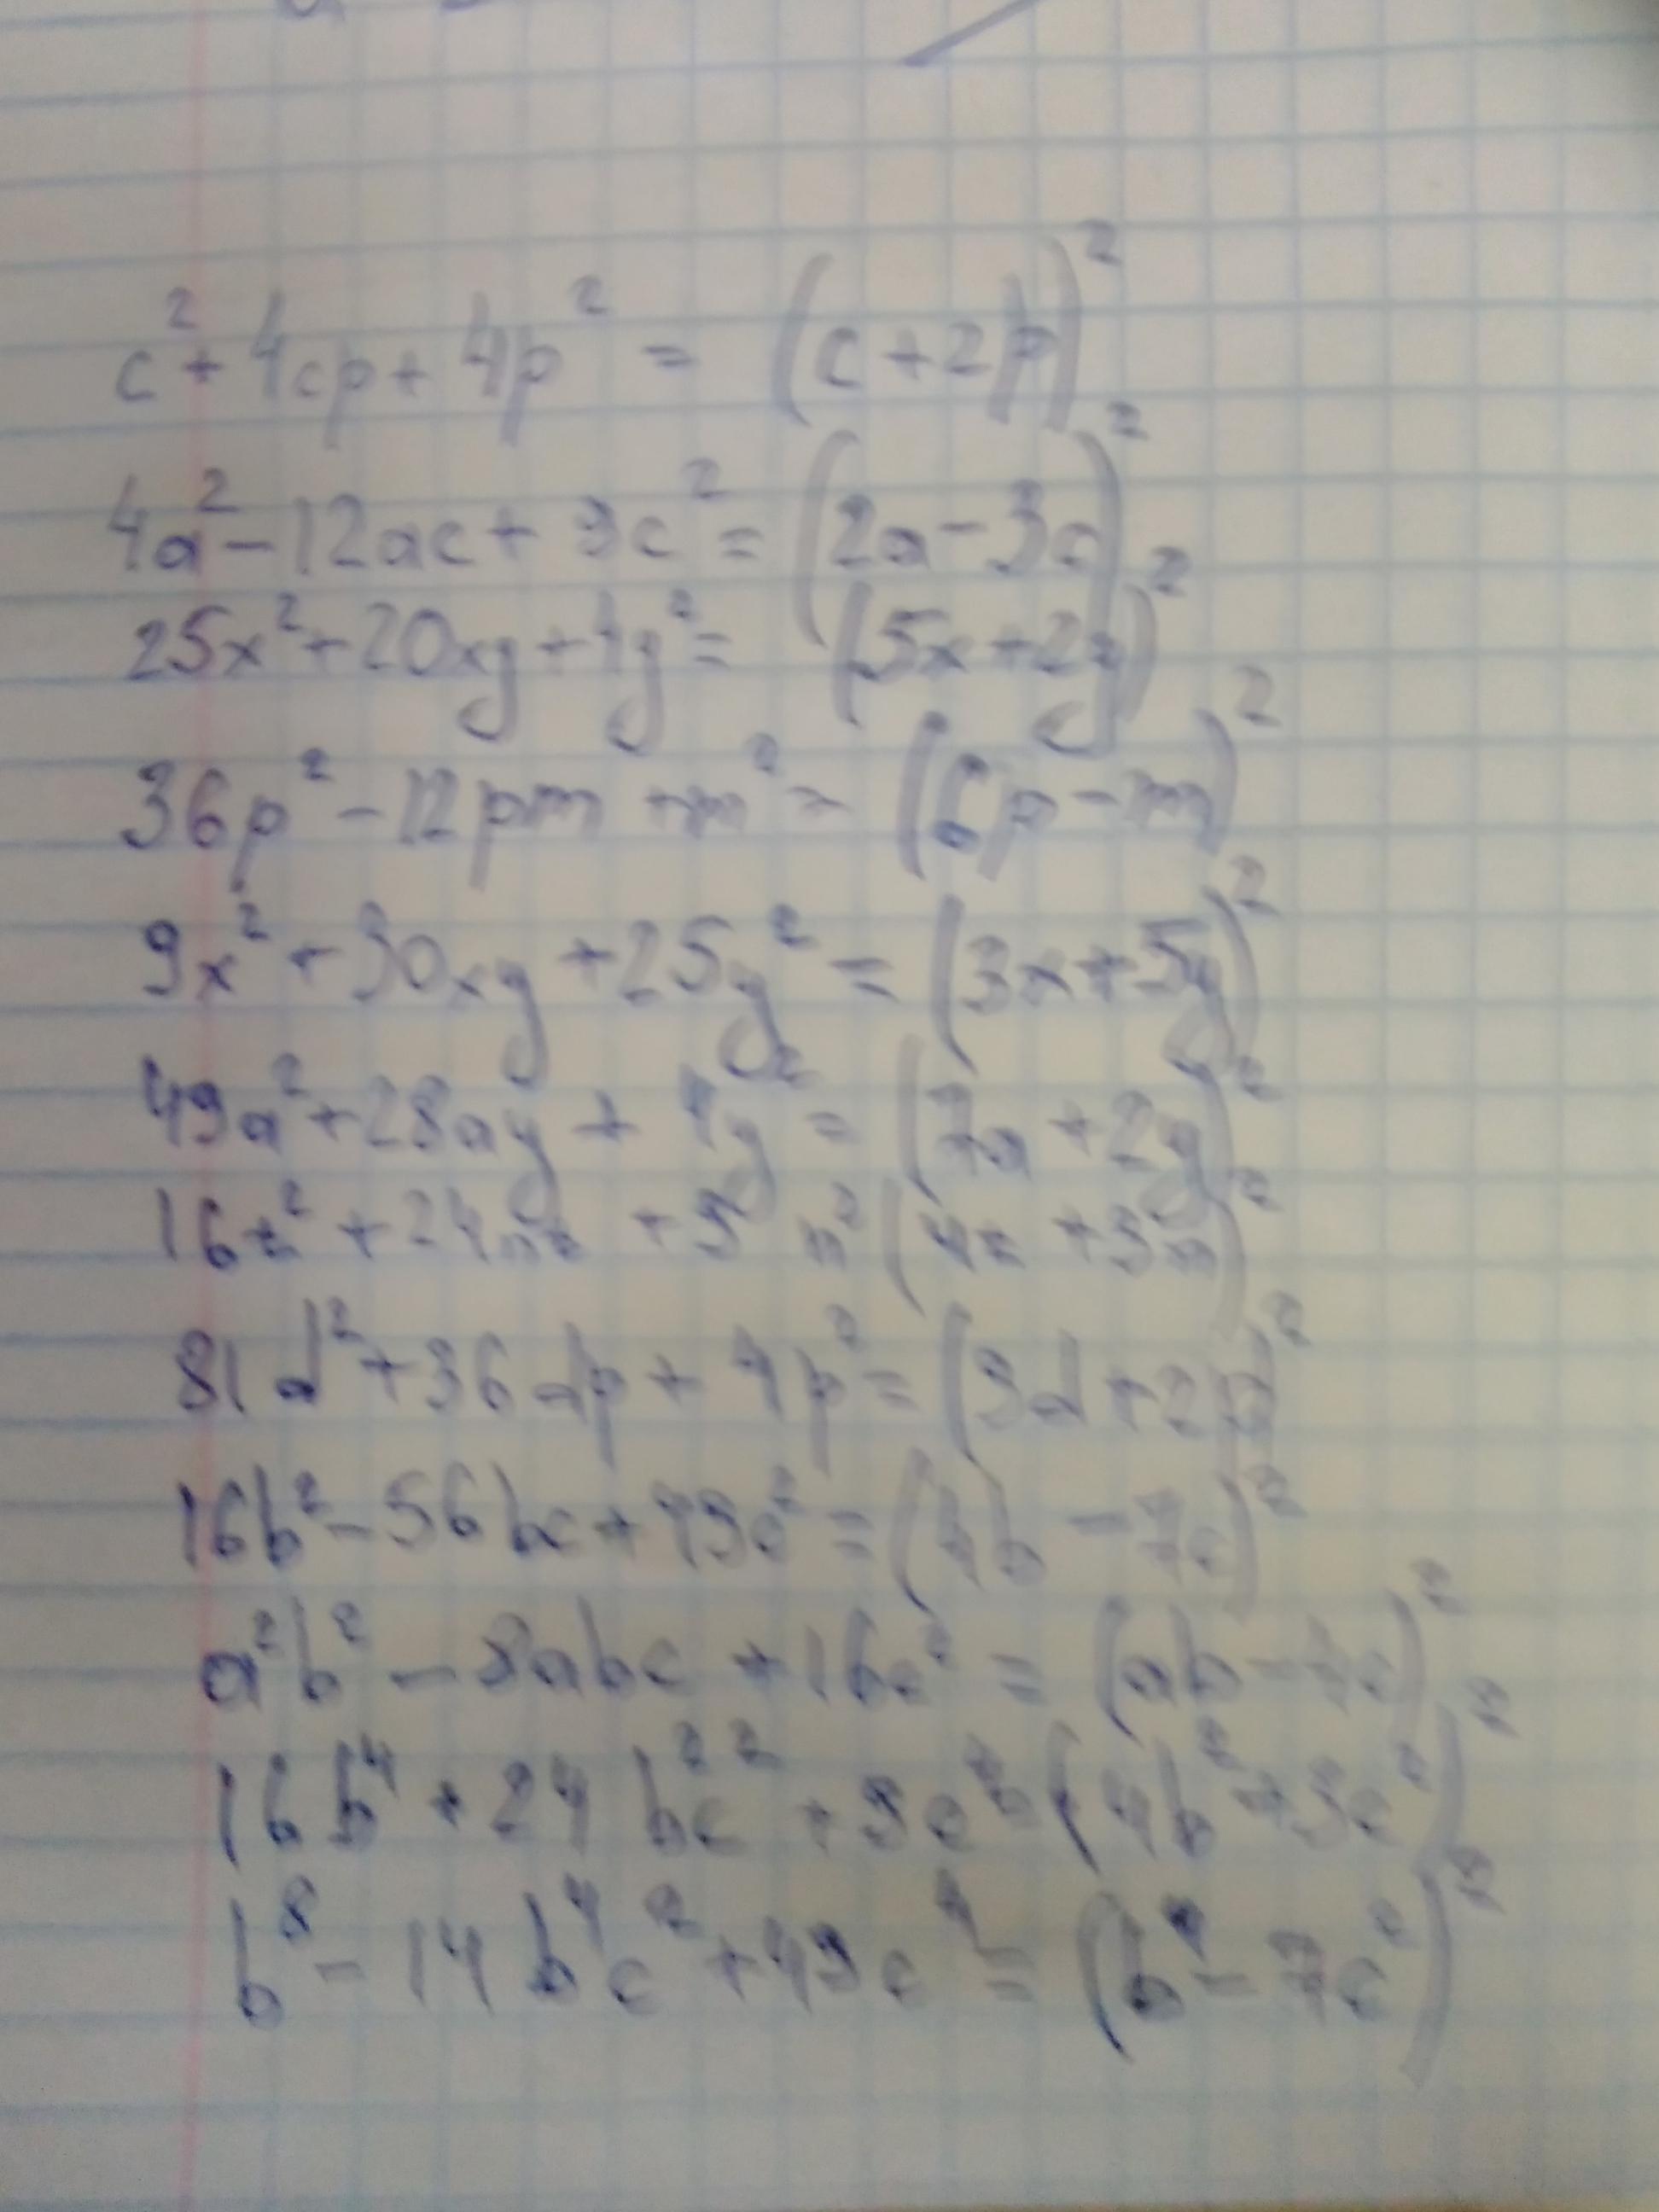 c² + 4cp + 4p² = (c + 2p)²
4a² - 12ac + 9c² = (2a - 3c)²
25x² + 20xy + 4y² = (5x + 2y)²
36p² - 12pm + m² = (6p - m)²
9x² + 30xy + 25y² = (3x + 5y)²
49a² + 28ay + 4y² = (7a + 2y)²
16z² + 24nz + 9n² (4z + 3n)²
81d² + 36dp + 4p² = (9d + 2p)²
16b² - 56bc + 49c² = (4b - 7c)²
a²b² - 8abc + 16c² = (ab - 4c)²
16b⁴ + 24b²c² + 9c⁴ = (4b² + 3c²)²
b⁸ - 14b⁴c² + 49c⁴ = (b⁴ - 7c²)²